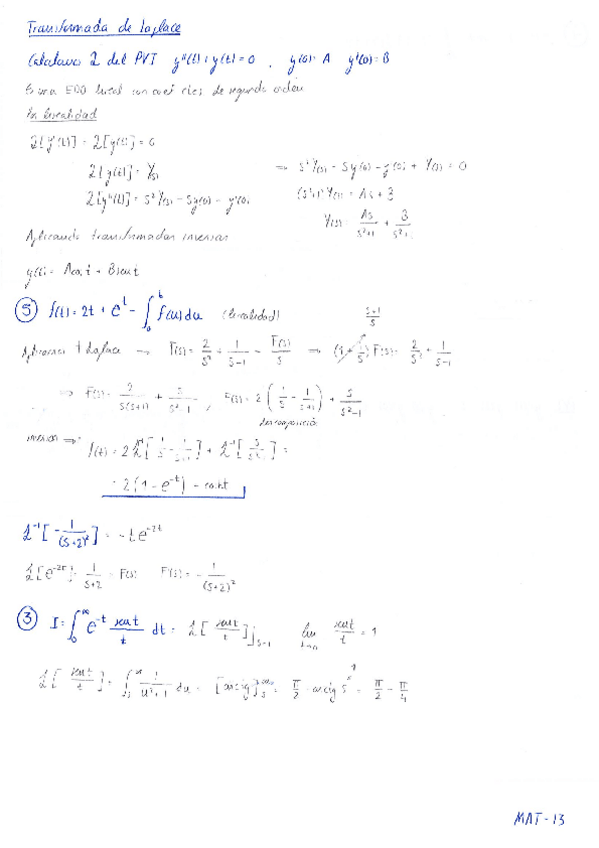 Transformada de Laplace
Calculamos L del PVI y''(t) + y(t) = 0 , y(0) = A y'(0) = B
Es una EDO lineal con coef ctes de segundo orden
Por linealidad
L[y''(t)] + L[y(t)] = 0
L[y(t)] = Y(s) ⇒ s² Y(s) - s y(0) - y'(0) + Y(s) = 0
L[y''(t)] = s² Y(s) - s y(0) - y'(0) (s²+1) Y(s) = As + B
Y(s) = As/(s²+1) + B/(s²+1)
Aplicando transformadas inversas
y(t) = A cos t + B sen t
⑤ f(t) = 2t + e^t - ∫₀^t f(u) du (linealidad) (s+1)/s
Aplicamos t Laplace → F(s) = 2/s² + 1/(s-1) - F(s)/s ⇒ (1 + 1/s) F(s) = 2/s² + 1/(s-1)
⇒ F(s) = 2/(s(s+1)) + s/(s²-1) , F(s) = 2(1/s - 1/(s+1)) + s/(s²-1)
descomposición
inversa ⇒ f(t) = 2 L⁻¹[1/s - 1/(s+1)] + L⁻¹[s/(s²-1)] =
= 2(1 - e^-t) - cosht
L⁻¹[-1/(s+2)²] = -t e^-2t
L[e^-2t] = 1/(s+2) = F(s) F'(s) = -1/(s+2)²
③ I = ∫₀^∞ e^-t sen t/t dt = L[sen t/t]]s=1 lim t→0 sen t/t = 1
L[sen t/t] = ∫s^∞ 1/(u²+1) du = [arctg]s^∞ = π/2 - arctg s = π/2 - π/4
MAT-13